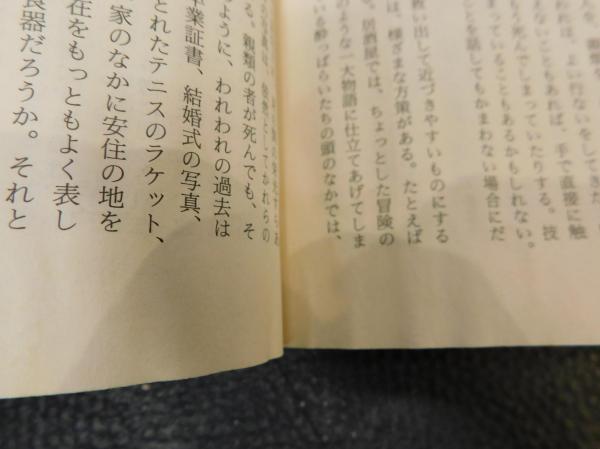 えないこともあれば、手で直接に触
死んでしまっていたりする。技
まっていることもあるかもしれない。
を話してもかまわない場合にだ
救い出して近づきやすいものにする
は、様ざまな方策がある。たとえば
居酒屋では、ちょっとした冒険の
のような一大物語に仕立てあげてしま
いる酔っぱらいたちの頭のなかでは、
る。親類の者が死んでも、そ
ように、われわれの過去は
卒業証書、結婚式の写真、
とれたテニスのラケット、
家のなかに安住の地を
在をもっともよく表し
食器だろうか。それと